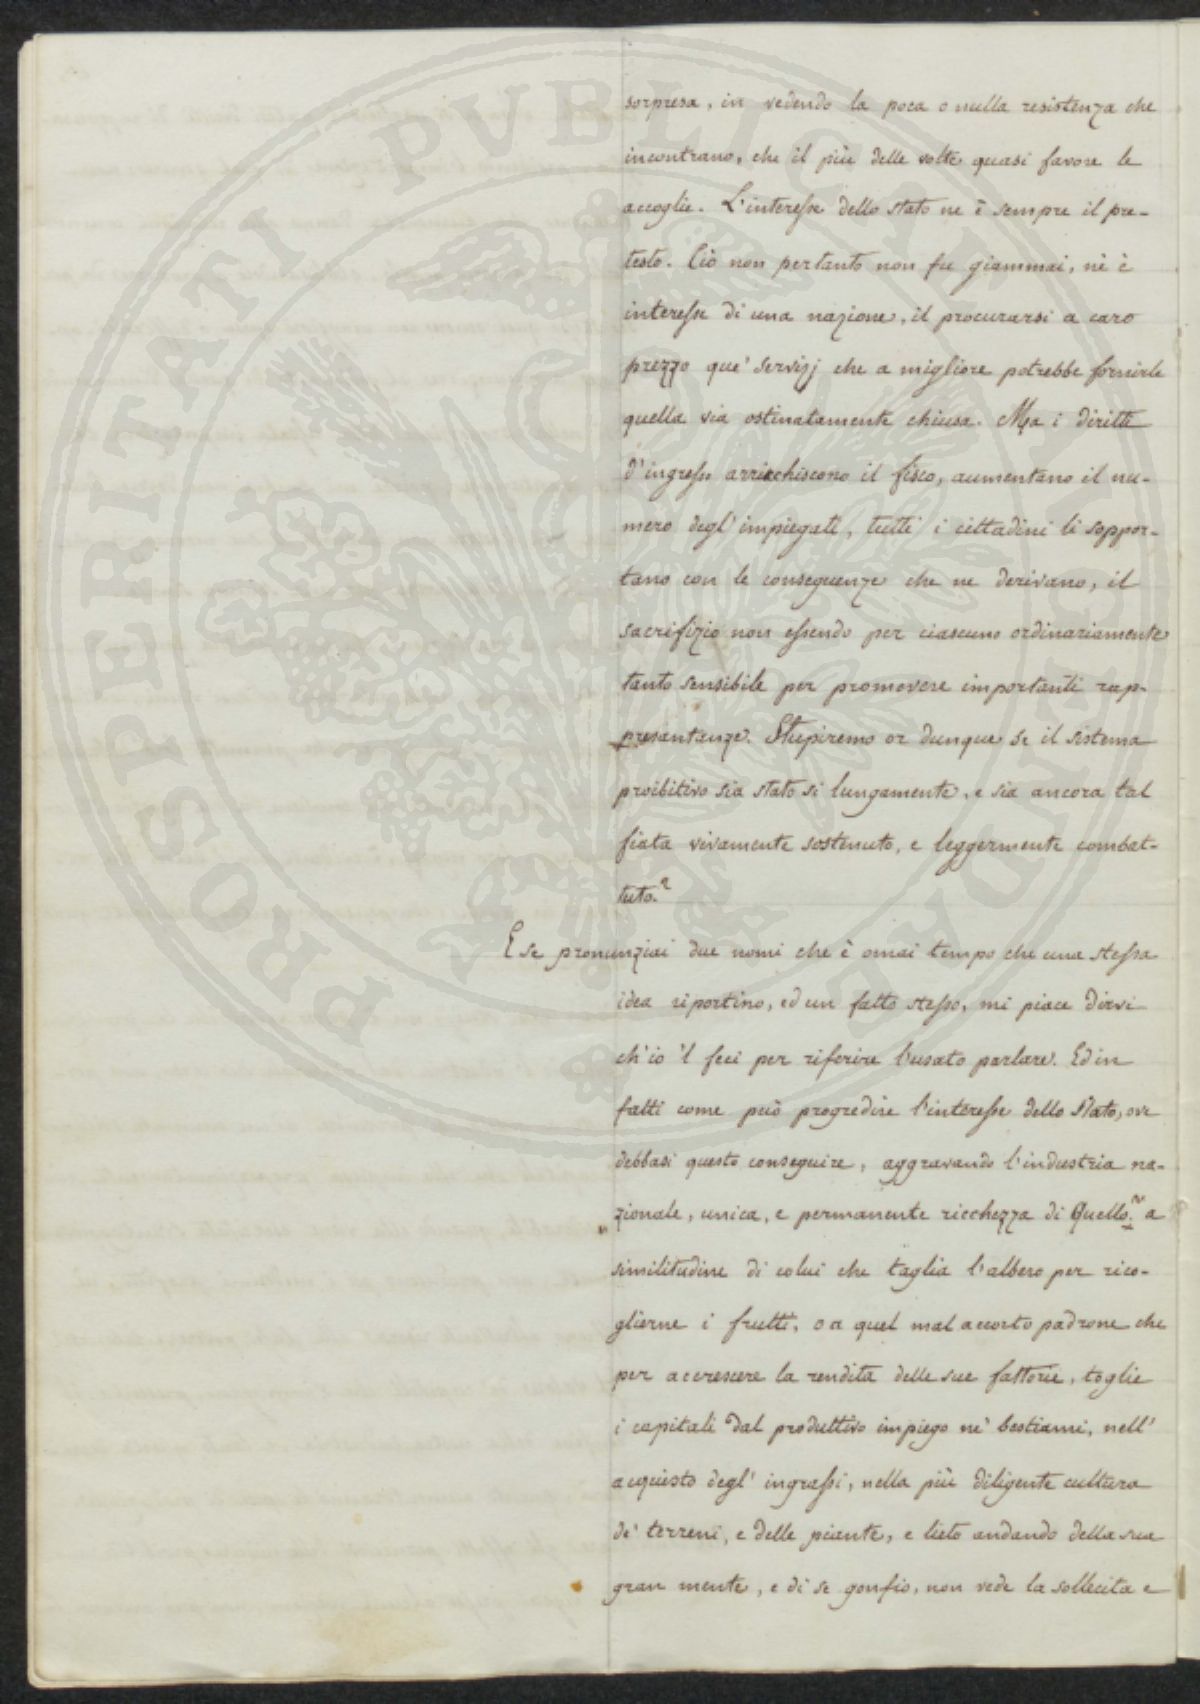 sorpresa, in vedendo la poca o nulla resistenza che
incontrano, che il più delle volte quasi favore le
accoglie. L'interesse dello stato ne è sempre il pre-
testo. Ciò non pertanto non fu giammai, nè è
interesse di una nazione, il procurarsi a caro
prezzo que' servizj che a migliore potrebbe fornirle
quella via ostinatamente chiusa. Ma i diritti
d'ingresso arricchiscono il fisco, aumentano il nu-
mero degl'impiegati, tutti i cittadini li soppor-
tano con le conseguenze che ne derivano, il
sacrifizio non essendo per ciascuno ordinariamente
tanto sensibile per promovere importanti rap-
presantanze. Stupiremo or dunque se il sistema
proibitivo sia stato sì lungamente, e sia ancora tal
fiata vivamente sostenuto, e leggermente combat-
tuto?
E se pronunziai due nomi che è omai tempo che una stessa
idea riportino, ed un fatto stesso, mi piace dirvi
ch'io 'l feci per riferire l'usato parlare. Ed in
fatti come può progredire l'interesse dello Stato, ove
debbasi questo conseguire, aggravando l'industria na-
zionale, unica, e permanente ricchezza di Quello? a
similitudine di colui che taglia l'albero per rico-
glierne i frutti, o a quel mal accorto padrone che
per accrescere la rendita delle sue fattorie, toglie
i capitali dal produttivo impiego ne' bestiami, nell'
acquisto degl'ingrassi, nella più diligente cultura
de' terreni, e delle piante, e lieto andando della sua
gran mente, e di se gonfio, non vede la sollecita e
PROSPERITATI PVBLICAE AVGENDAE